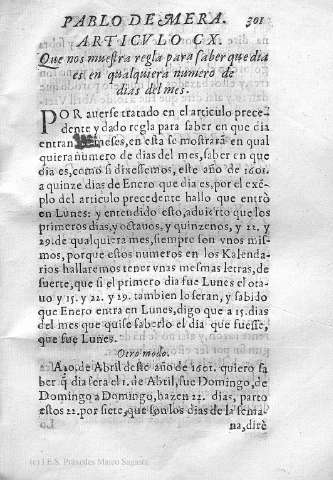 PABLO DE MERA. 301
ARTICVLO CX.
Que nos muestra regla para saber que dia
es en qualquiera numero de
dias del mes.
POR auerse tratado en el articulo prece-
dente y dado regla para saber en que dia
entran meses, en esta se mostrarà en qual
quiera numero de dias del mes, saber en que
dia es, como si dixessemos, este año de 1601.
a quinze dias de Enero que dia es, por el exẽ-
plo del articulo precedente hallo que entrò
en Lunes: y entendido esto, aduierto que los
primeros dias, y octauos, y quinzenos, y 22. y
29. de qualquiera mes, siempre son vnos mis-
mos, porque estos numeros en los Kalenda-
rios hallaremos tener vnas mesmas letras, de
suerte, que si el primero dia fue Lunes el ota-
uo y 15. y 22. y 29. tambien lo seran, y sabido
que Enero entra en Lunes, digo que a 15. dias
del mes que quise saberlo el dia que fuesse,
que fue Lunes.
Otro modo.
A 20. de Abril deste año de 1601. quiero sa
ber q̃ dia sera el 1. de Abril, fue Domingo, de
Domingo a Domingo, hazen 22. dias, parto
estos 22. por siete, que son los dias de la sema-
na, dirè
(c) I.E.S. Práxedes Mateo Sagasta